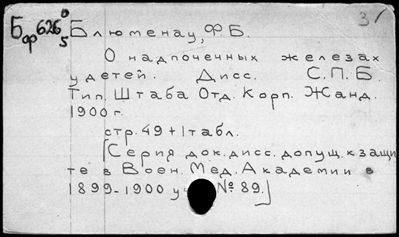 Бф 626 0/5 Блюменау, Ф. Б. 31
О надпочечных железах
у детей. Дисс. С.П.Б.
Тип. Штаба Отд. Корп. Жанд.
1900 г.
стр. 49 + 1 табл.
[Серия док. дисс. допущ. к защи
те в Воен. Мед. Академии в
1899-1900 у № 89.]